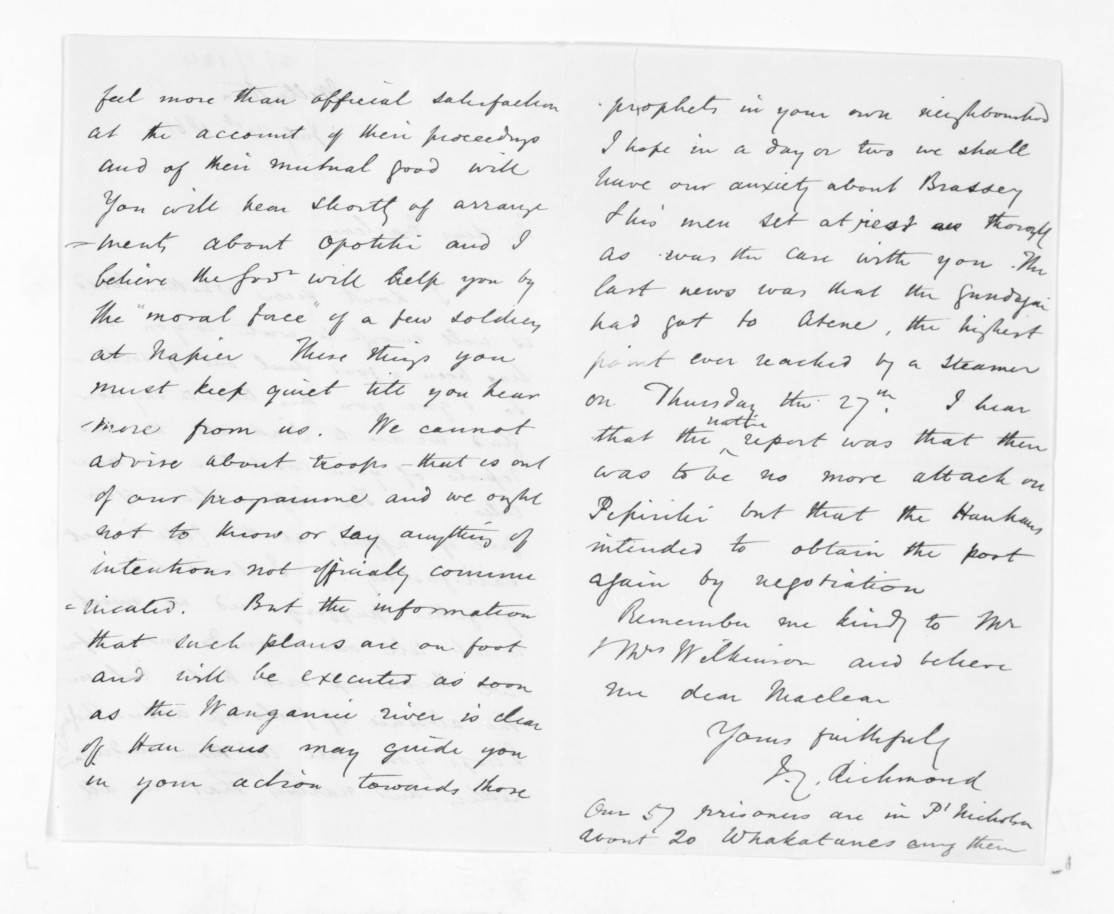 feel more than official satisfaction
at the account of their proceedings
and of their mutual good will
You will hear shortly of arrange
=ments about Opotiki and I
believe the Govt will help you by
the "moral force" of a few soldiers
at Napier These things you
must keep quiet till you hear
more from us. We cannot
advise about troops - that is out
of our programme and we ought
not to know or say anything of
intentions not officially commu
=nicated. But the information
that such plans are on foot
and will be executed as soon
as the Wanganui river is clear
of Hau haus may guide you
in your action towards those
prophets in your own neighbourhood
I hope in a day or two we shall
have our anxiety about Brassey
& his men set at rest as thoroughly
as was the case with you. The
last news was that the Gundagai
had got to Atene, the highest
point ever reached by a steamer
on Thursday the 27th. I hear
that the native report was that there
was to be no more attack on
Pipiriki but that the Hauhaus
intended to obtain the post
again by negotiation
Remember me kindly to Mr
& Mrs Wilkinson and believe
me dear Maclean
Yours faithfully
J.C. Richmond
Our 57 prisoners are in Pt Nicholson
about 20 Whakatanes among them